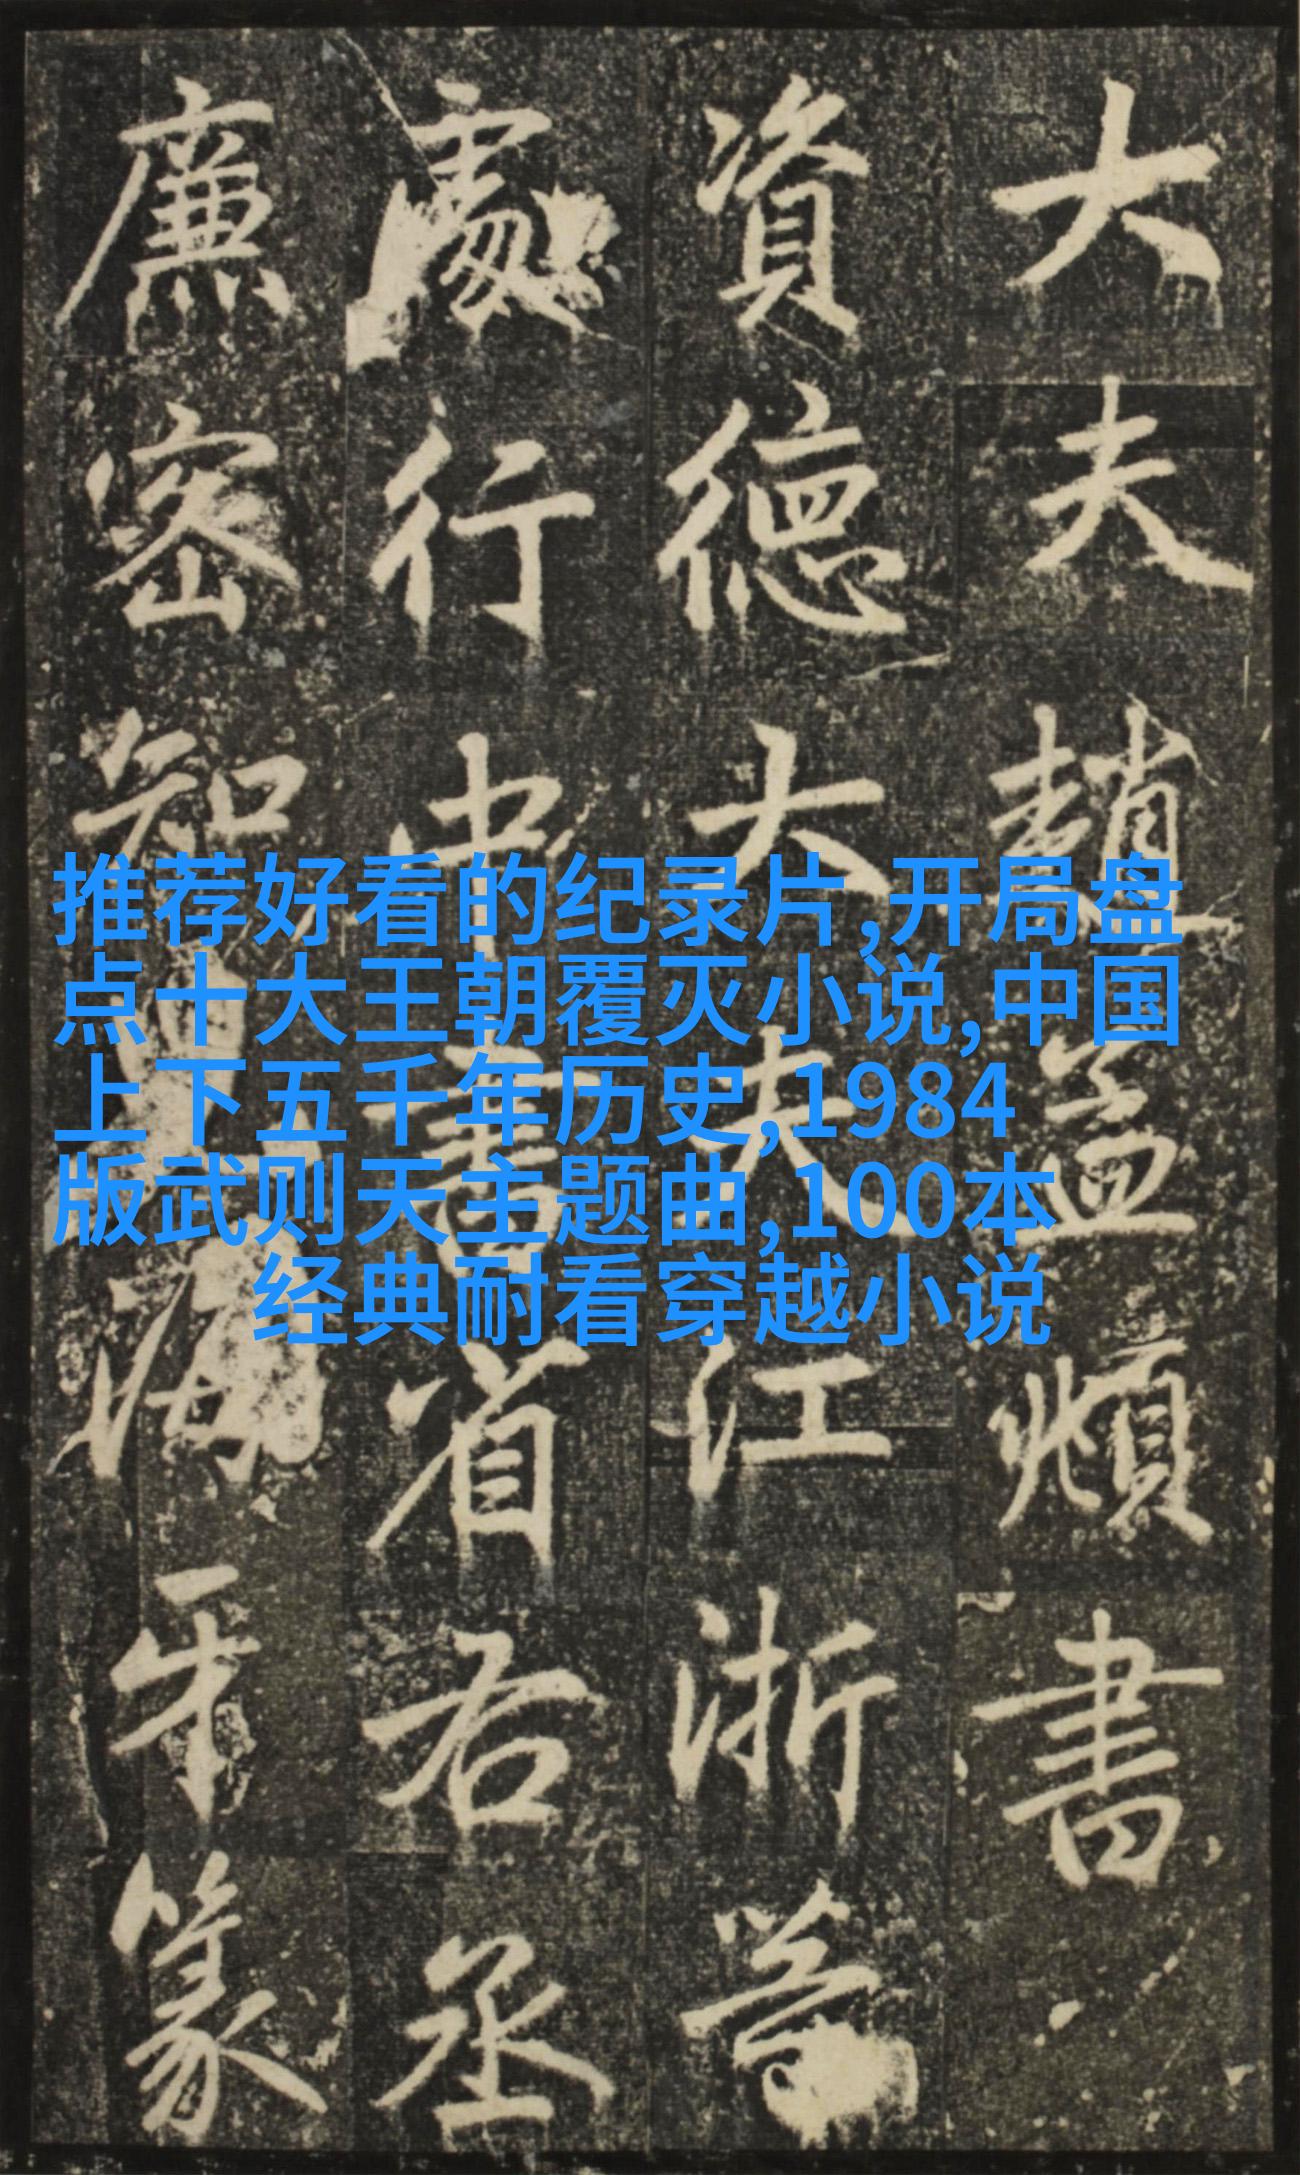 大夫趙孟頫書
資德大夫江浙等
處行中書省右丞
廉密知海牙篆
推荐好看的纪录片,开局盘
点十大王朝覆灭小说,中国
上下五千年历史,1984
版武则天主题曲,100本
经典耐看穿越小说